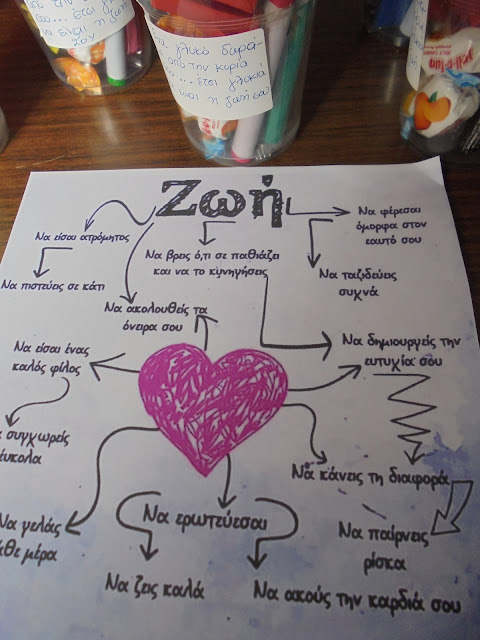 ένα γλυκό δωρά-
από την κυρία
... έτσι γλυκιά
είναι η ζωή σου
jelly candy
Ζωή
Να είσαι ατρόμητος
Να πιστεύεις σε κάτι
Να ακολουθείς τα
όνειρα σου
Να βρεις ό,τι σε παθιάζει
και να το κυνηγήσεις
Να φέρεσαι
όμορφα στον
εαυτό σου
Να ταξιδεύεις
συχνά
Να είσαι ένας
καλός φίλος
Να δημιουργείς την
ευτυχία σου
συγχωρείς
εύκολα
Να κάνεις τη διαφορά
Να γελάς
κάθε μέρα
Να ερωτεύεσαι
Να παίρνεις
ρίσκα
Να ζεις καλά
Να ακούς την καρδιά σου